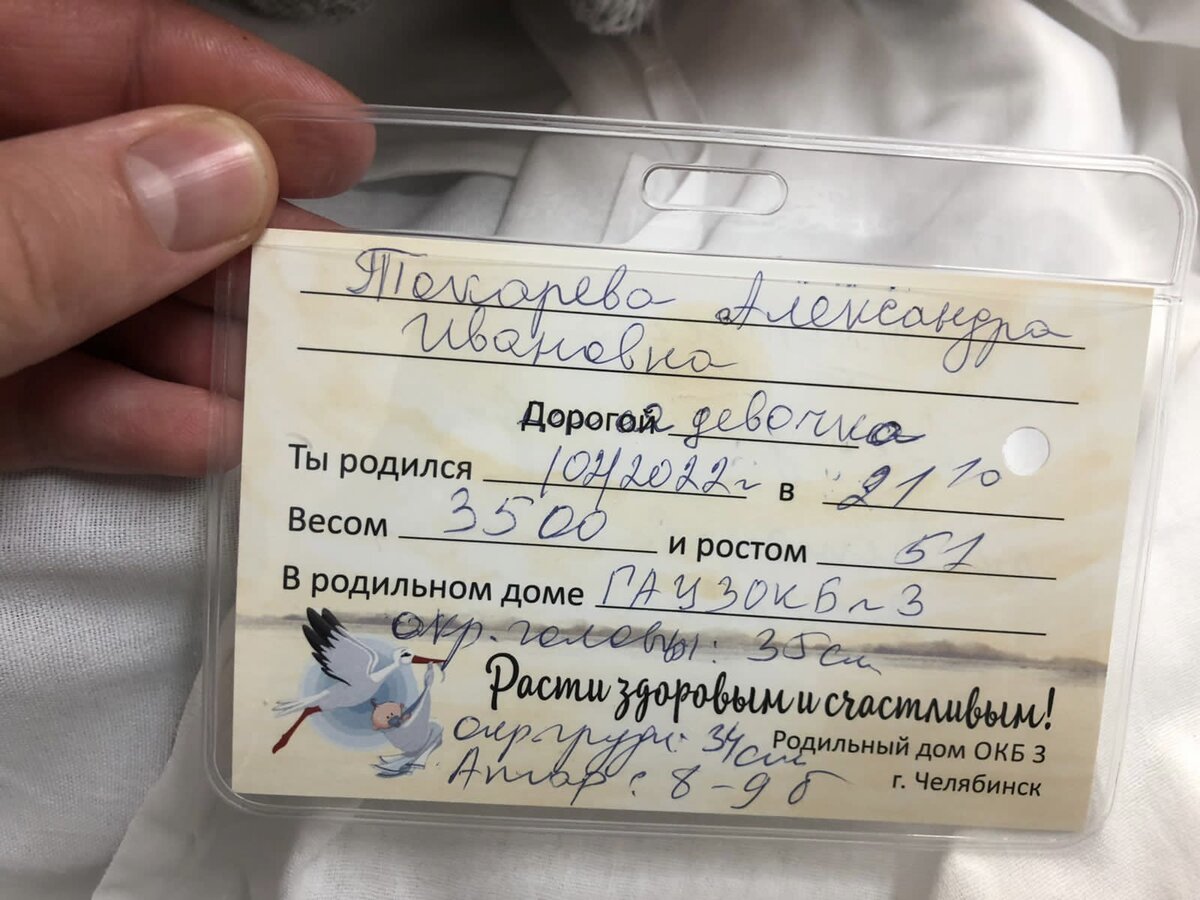 Токарева Александра
Ивановна
Дорогая девочка
Ты родился 10 2022г в 21 10
Весом 3500 и ростом 51
В родильном доме ГАУЗ ОКБ №3
окр. головы: 35 см
Расти здоровым и счастливым!
окр груди: 34 см
Родильный дом ОКБ 3
Апгар: 8-9 б
г. Челябинск